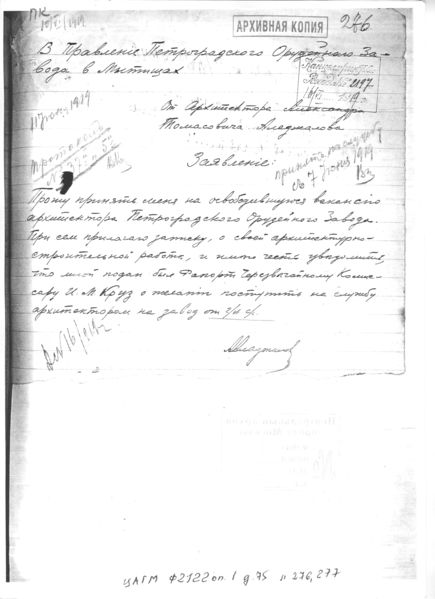 ПК
АРХИВНАЯ КОПИЯ
276
В Правленіе Петроградского Оружейного За-
вода в Мытищах
11 Іюня 1919
От Архитектора Александра
Томасовича
Заявленіе:
Протокол
принять на службу
с 7 июня 1919
Прошу принять меня на освободившуюся вакансію
архитектора Петроградского Орудейного Завода.
При сем прилагаю записку, о своей архитектурно-
строительной работе, и имею честь уведомить,
что мной подан был Рапорт Чрезвычайному Комис-
сару И. М. Круз о желаніи поступить на службу
архитектором на завод от
ЦАГМ Ф2122 оп. 1 д. 75 л 276,277